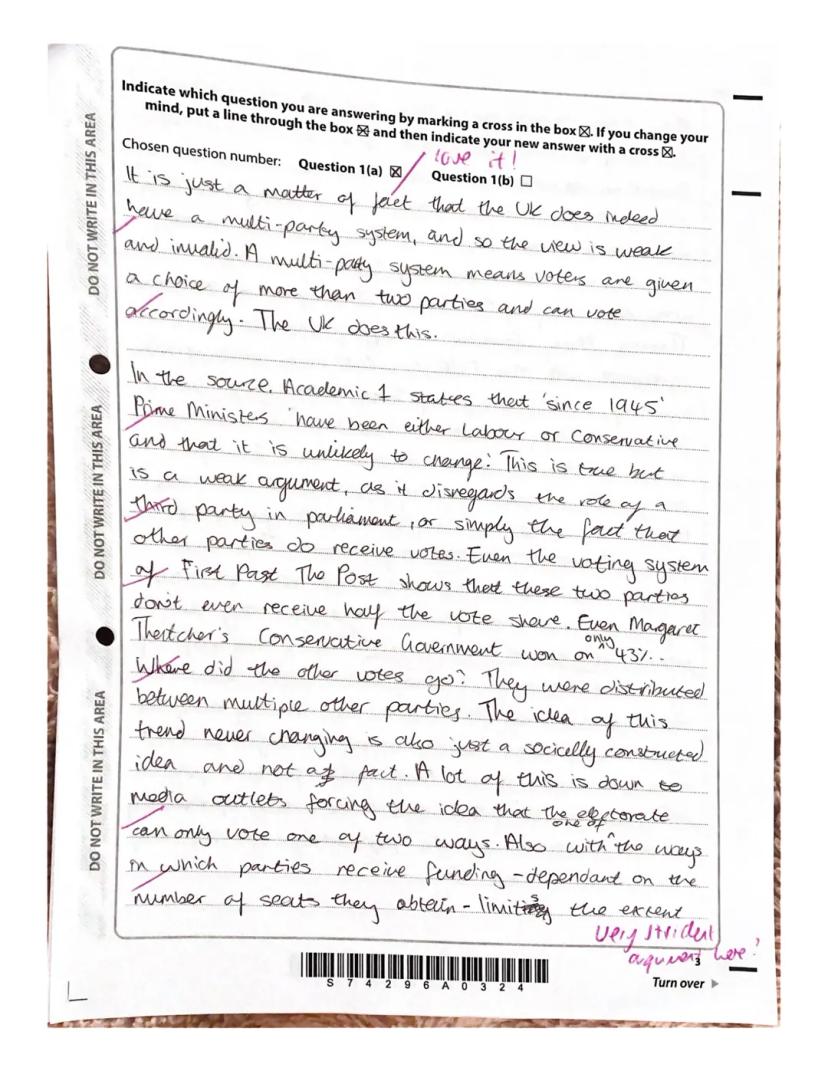 Indicate which question you are answering by marking a cross in the box ☒. If you change your
mind, put a line through the box ☒ and then indicate your new answer with a cross ☒.
love it!
Chosen question number: Question 1(a) ☒ Question 1(b) ☐
It is just a matter of fact that the UK does indeed
have a multi-party system, and so the view is weak
and invalid. A multi-party system means voters are given
a choice of more than two parties and can vote
accordingly. The UK does this.
In the source, Academic 1 states that 'since 1945'
Prime Ministers 'have been either Labour or Conservative
and that it is unlikely to change.' This is true but
is a weak argument, as it disregards the role of a
third party in parliament, or simply the fact that
other parties do receive votes. Even the voting system
of First Past The Post shows that these two parties
don't even receive half the vote share. Even Margaret
Thatcher's Conservative Government won on only 43%.
Where did the other votes go? They were distributed
between multiple other parties. The idea of this
trend never changing is also just a socially constructed
idea and not a fact. A lot of this is down to
media outlets forcing the idea that the electorate
can only vote one of two ways. Also with one of the ways
in which parties receive funding - dependant on the
number of seats they obtain - limits the extent
very strident
argument here!
3
S74296A0324
Turn over
DO NOT WRITE IN THIS AREA
DO NOT WRITE IN THIS AREA
DO NOT WRITE IN THIS AREA